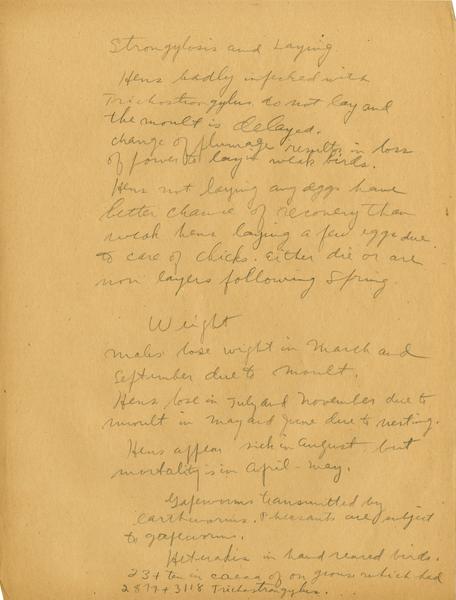 Strongylosis and Laying
Hens badly infected with
Trichostrongylus do not lay and
the moult is delayed.
change of plumage results in loss
of power to lay in weak birds.
Hens not laying any eggs have
better chance of recovery than
weak hens laying a few eggs due
to care of chicks. Either die or are
non layers following Spring.
Weight
Males lose wight in March and
September due to moult.
Hens lose in July and November due to
moult in May and June due to nesting.
Hens appear sick in August but
mortality is in April-May.
Gapeworms transmitted by
earthworms. Pheasants are subject
to gapeworms.
Heterakis in hand reared birds.
23 + ten in caeca of on grouse which had
2877 + 3118 Trichostrongylus.